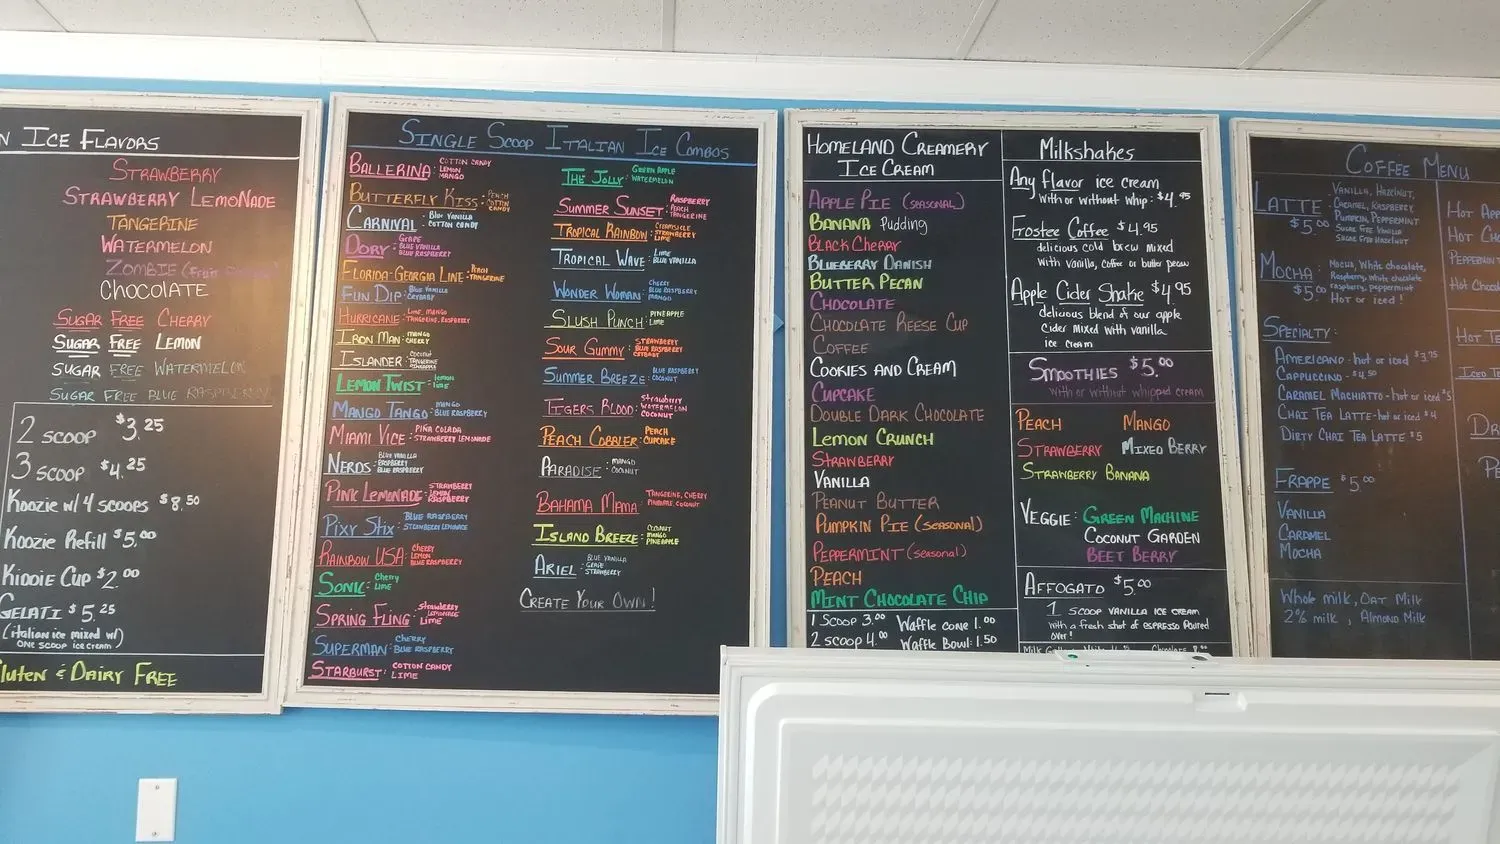 N ICE FLAVORS
STRAWBERRY
STRAWBERRY LEMONADE
TANGERINE
WATERMELON
ZOMBIE
CHOCOLATE
SUGAR FREE CHERRY
SUGAR FREE LEMON
SUGAR FREE WATERMELON
SUGAR FREE BLUE RASPBERRY
2 SCOOP $3.25
3 SCOOP $4.25
Koozie w/ 4 scoops $8.50
Koozie Refill $5.00
KIDDIE CUP $2.00
GELATI $5.25
(italian ice mixed w/)
ONE SCOOP ICE CREAM
GLUTEN & DAIRY FREE
SINGLE SCOOP ITALIAN ICE COMBOS
BALLERINA: COTTON CANDY
LEMON
MANGO
BUTTERFLY KISS: PEACH
COTTON
CANDY
CARNIVAL: BLUE VANILLA
COTTON CANDY
DORY: GRAPE
BLUE VANILLA
BLUE RASPBERRY
FLORIDA-GEORGIA LINE: PEACH
TANGERINE
FUN DIP: BLUE VANILLA
CRYBABY
HURRICANE: LIME, MANGO
TANGERINE, RASPBERRY
IRON MAN: MANGO
CHERRY
ISLANDER: COCONUT
TANGERINE
PINEAPPLE
LEMON TWIST: lemon
lime
MANGO TANGO: MANGO
BLUE RASPBERRY
MIAMI VICE: PIÑA COLADA
STRAWBERRY LEMONADE
NERDS: BLUE VANILLA
RASPBERRY
BLUE RASPBERRY
PINK LEMONADE: STRAWBERRY
LEMON
RASPBERRY
PIXY STIX: BLUE RASPBERRY
STRAWBERRY LEMONADE
RAINBOW USA: CHERRY
LEMON
BLUE RASPBERRY
SONIC: Cherry
LIME
SPRING FLING: STRAWBERRY
LEMONADE
LIME
SUPERMAN: CHERRY
BLUE RASPBERRY
STARBURST: COTTON CANDY
LIME
THE JOLLY: GREEN APPLE
WATERMELON
SUMMER SUNSET: RASPBERRY
PEACH
TANGERINE
TROPICAL RAINBOW: CREAMSICLE
STRAWBERRY
LIME
TROPICAL WAVE: LIME
BLUE VANILLA
WONDER WOMAN: CHERRY
BLUE RASPBERRY
MANGO
SLUSH PUNCH: PINEAPPLE
LIME
SOUR GUMMY: STRAWBERRY
BLUE RASPBERRY
CRYBABY
SUMMER BREEZE: BLUE RASPBERRY
COCONUT
TIGERS BLOOD: Strawberry
WATERMELON
COCONUT
PEACH COBBLER: PEACH
CUPCAKE
PARADISE: MANGO
COCONUT
BAHAMA MAMA: TANGERINE, CHERRY
PINEAPPLE, COCONUT
ISLAND BREEZE: COCONUT
MANGO
PINEAPPLE
ARIEL: BLUE VANILLA
GRAPE
STRAWBERRY
CREATE YOUR OWN!
HOMELAND CREAMERY
ICE CREAM
APPLE PIE (SEASONAL)
BANANA Pudding
BLACK CHERRY
BLUEBERRY DANISH
BUTTER PECAN
CHOCOLATE
CHOCOLATE REESE CUP
COFFEE
COOKIES AND CREAM
CUPCAKE
DOUBLE DARK CHOCOLATE
LEMON CRUNCH
STRAWBERRY
VANILLA
PEANUT BUTTER
PUMPKIN PIE (SEASONAL)
PEPPERMINT (seasonal)
PEACH
MINT CHOCOLATE CHIP
1 SCOOP 3.00 Waffle cone 1.00
2 SCOOP 4.00 Waffle Bowl: 1.50
Milkshakes
Any flavor ice cream
with or without whip: $4.95
Frostee Coffee $4.95
delicious cold brew mixed
with vanilla, coffee or butter pecan
Apple Cider Shake $4.95
delicious blend of our apple
cider mixed with vanilla
ice cream
SMOOTHIES $5.00
with or without whipped cream
PEACH MANGO
STRAWBERRY MIXED BERRY
STRAWBERRY BANANA
VEGGIE: GREEN MACHINE
COCONUT GARDEN
BEET BERRY
AFFOGATO $5.00
1 SCOOP VANILLA ICE CREAM
with a fresh shot of ESPRESSO Poured
over!
COFFEE MENU
LATTE: VANILLA, HAZELNUT,
$5.00 CARAMEL, RASPBERRY
PUMPKIN, PEPPERMINT
SUGAR FREE VANILLA
SUGAR FREE HAZELNUT
MOCHA: MOCHA, WHITE CHOCOLATE,
$5.00 Raspberry, white chocolate
raspberry, peppermint
HOT or iced!
SPECIALTY:
AMERICANO - hot or iced $3.75
CAPPUCCINO - $4.50
CARAMEL MACHIATTO - hot or iced $5
CHAI TEA LATTE - hot or iced $4
DIRTY CHAI TEA LATTE $5
FRAPPE $5.00
VANILLA
CARAMEL
MOCHA
Whole milk, OAT Milk
2% milk, Almond Milk
HOT APP
HOT CHO
PEPPERMINT
Hot Choco
HOT TE
ICED TE
DR